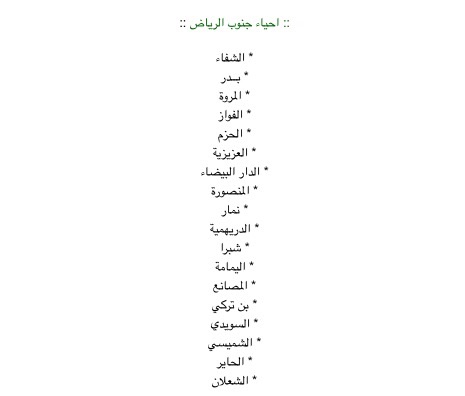 :: احياء جنوب الرياض ::
* الشفاء
* بــدر
* المروة
* الفواز
* الحزم
* العزيزية
* الدار البيضاء
* المنصورة
* نمار
* الدريهمية
* شبرا
* اليمامة
* المصانع
* بن تركي
* السويدي
* الشميسي
* الحاير
* الشعلان